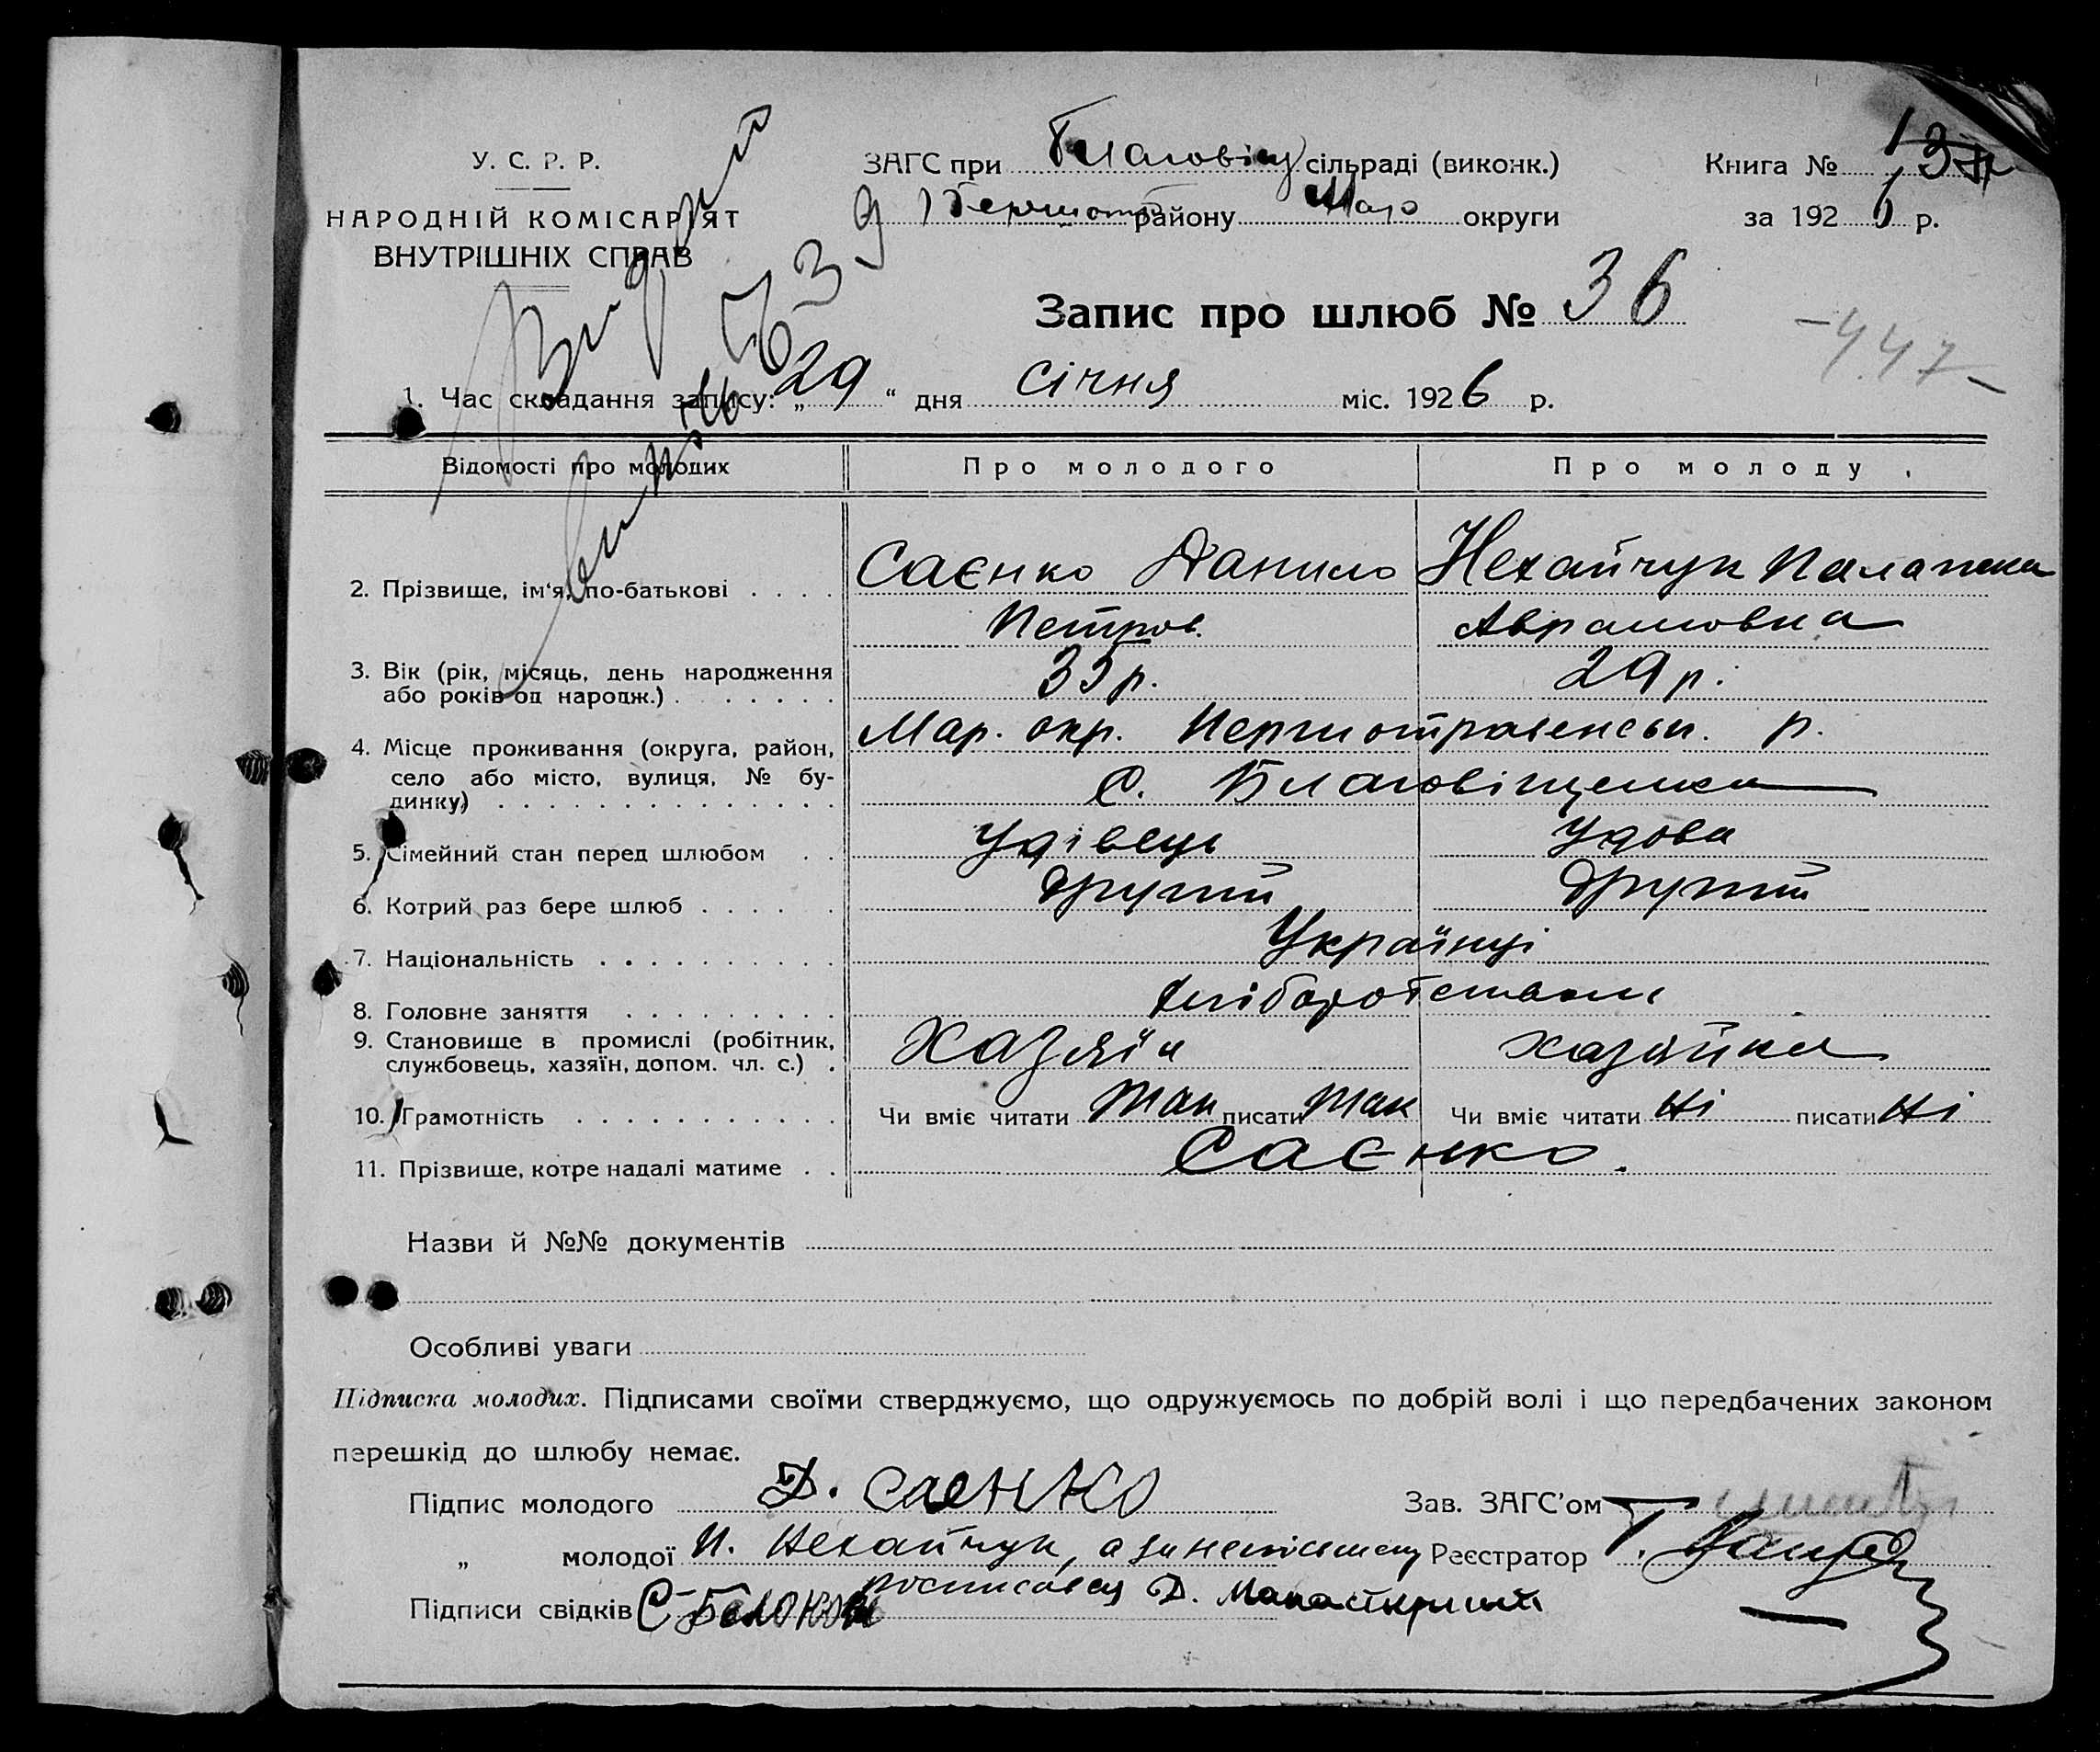 У. С. Р. Р.
НАРОДНІЙ КОМІСАРІЯТ
ВНУТРІШНІХ СПРАВ
ЗАГС при Благовіщ сільраді (виконк.)
району округи
Книга №
за 1926 р.
Запис про шлюб № 36
-447-
1. Час складання запису: „29“ дня січня міс. 1926 р.
Відомості про молодих Про молодого Про молоду
2. Прізвище, ім'я, по-батькові Саєнко Данило Нехайчук Палажка
Петров. Аврамовна
3. Вік (рік, місяць, день народження
або років од народж.) р. 29 р.
4. Місце проживання (округа, район,
село або місто, вулиця, № бу-
динку)
Мар. окр. Першотравенськ. р.
с. Благовіщенка
5. Сімейний стан перед шлюбом Удівець Удова
6. Котрий раз бере шлюб другий другий
7. Національність Українці
8. Головне заняття
9. Становище в промислі (робітник,
службовець, хазяїн, допом. чл. с.) Хазяїн хазяйка
10. Грамотність Чи вміє читати так писати так Чи вміє читати ні писати ні
11. Прізвище, котре надалі матиме Саєнко.
Назви й №№ документів
Особливі уваги
Підписка молодих. Підписами своїми стверджуємо, що одружуємось по добрій волі і що передбачених законом
перешкід до шлюбу немає.
Підпис молодого Д. Саенко Зав. ЗАГС'ом
„ молодої П. Нехайчук, а за Реєстратор
Підписи свідків Д.